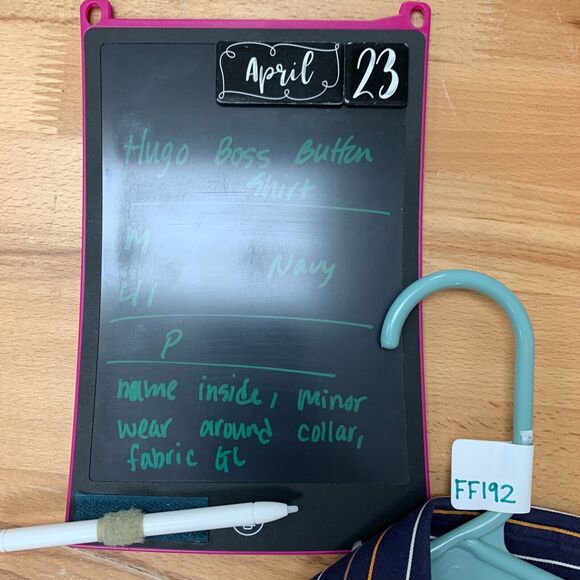 April 23
Hugo Boss Button
Shirt
M
Navy
41
P
name inside, minor
wear around collar,
fabric GL
FF192